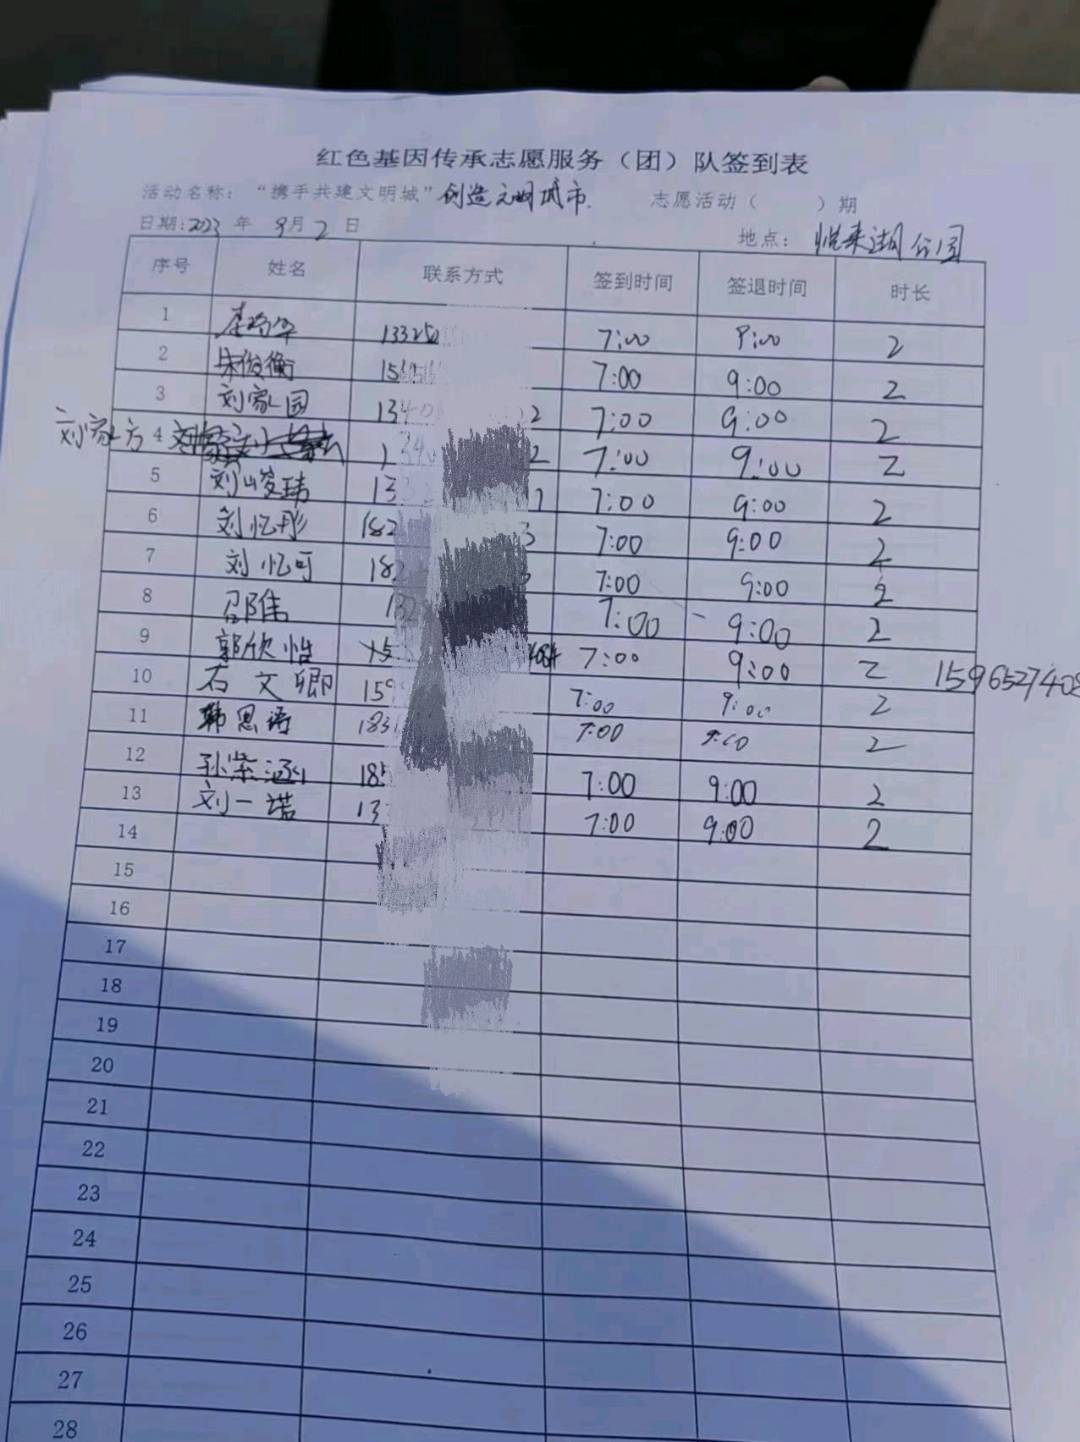 红色基因传承志愿服务（团）队签到表
活动名称：“携手共建文明城”创造文明城市 志愿活动（ ）期
日期：2023年9月2日 地点：悦来湖公园
序号 姓名 联系方式 签到时间 签退时间 时长
1 13325 7:00 9:00 2
2 朱俊衡 156 7:00 9:00 2
3 刘家园 1340 2 7:00 9:00 2
刘家方 4 134 2 7:00 9:00 2
5 刘峻玮 133 7:00 9:00 2
6 刘忆彤 182 3 7:00 9:00 2
7 刘忆可 182 7:00 9:00 2
8 邵隹 132 7:00 9:00 2
9 郭欣怡 15 7:00 9:00 2 1596527408
10 石文卿 159 7:00 9:00 2
11 韩思语 183 7:00 9:00 2
12 孙紫涵 185 7:00 9:00 2
13 刘一诺 133 7:00 9:00 2
14
15
16
17
18
19
20
21
22
23
24
25
26
27
28